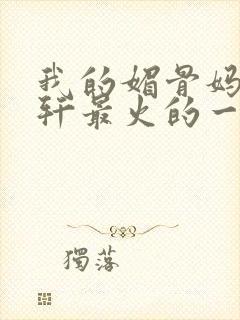 我的媚骨妈
轩最火的一
獨落